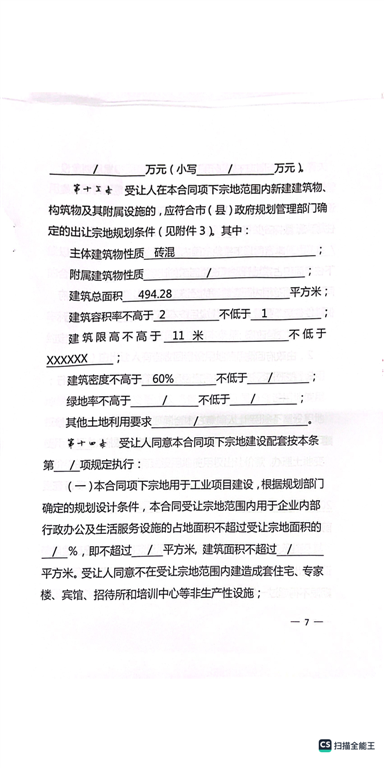 / 万元(小写 / 万元)。
第十三条 受让人在本合同项下宗地范围内新建建筑物、
构筑物及其附属设施的,应符合市(县)政府规划管理部门确
定的出让宗地规划条件(见附件3)。其中:
主体建筑物性质 砖混 ;
附属建筑物性质 / ;
建筑总面积 494.28 平方米;
建筑容积率不高于 2 不低于 1 ;
建筑限高不高于 11 米 不低于
XXXXXX ;
建筑密度不高于 60% 不低于 / ;
绿地率不高于 / 不低于 / ;
其他土地利用要求 / 。
第十四条 受让人同意本合同项下宗地建设配套按本条
第 / 项规定执行:
(一)本合同项下宗地用于工业项目建设,根据规划部门
确定的规划设计条件,本合同受让宗地范围内用于企业内部
行政办公及生活服务设施的占地面积不超过受让宗地面积的
/ %,即不超过 / 平方米,建筑面积不超过 /
平方米。受让人同意不在受让宗地范围内建造成套住宅、专家
楼、宾馆、招待所和培训中心等非生产性设施;
— 7 —
CS 扫描全能王